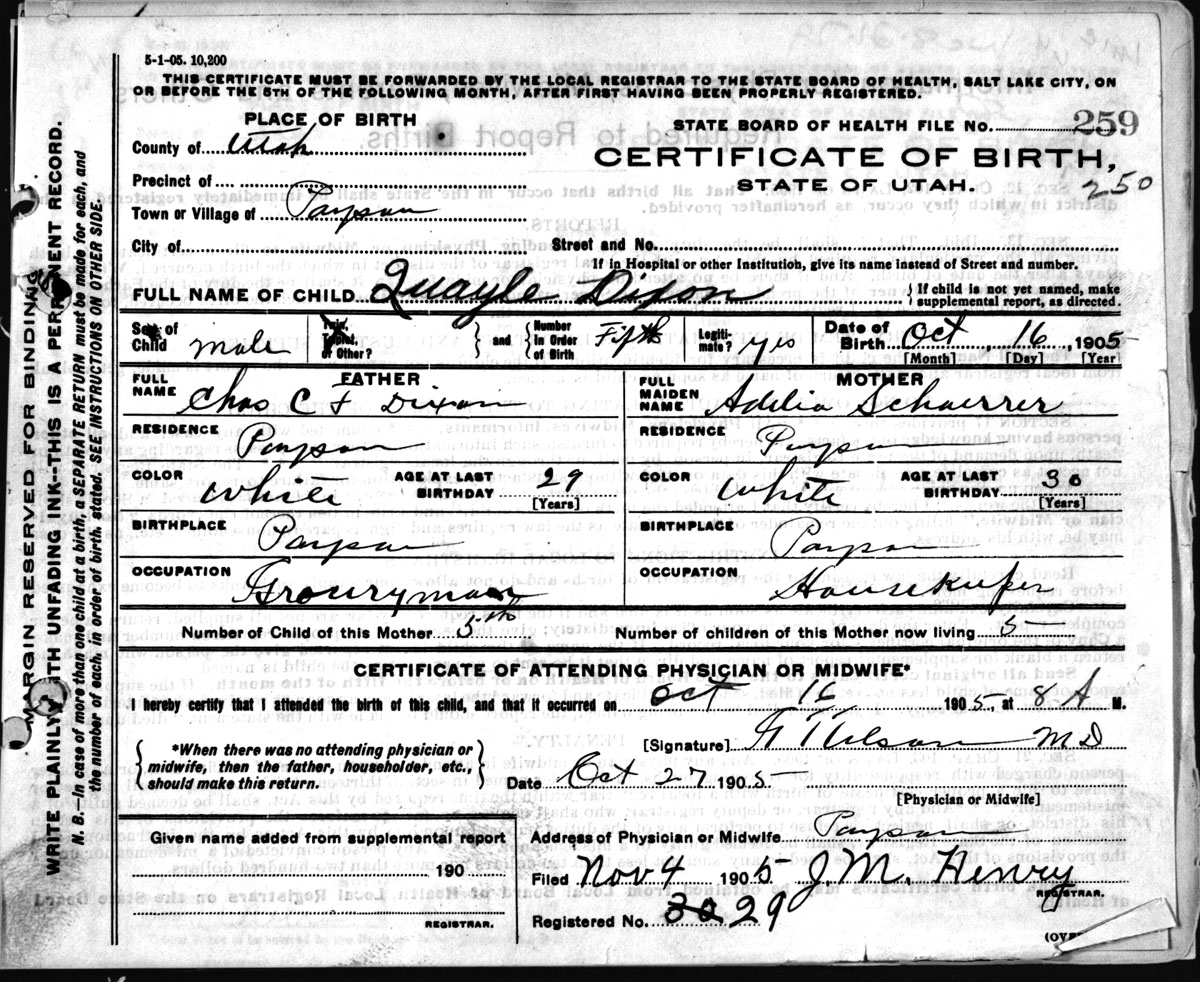 5-1-05. 10,200
THIS CERTIFICATE MUST BE FORWARDED BY THE LOCAL REGISTRAR TO THE STATE BOARD OF HEALTH, SALT LAKE CITY, ON
OR BEFORE THE 5TH OF THE FOLLOWING MONTH, AFTER FIRST HAVING BEEN PROPERLY REGISTERED.
PLACE OF BIRTH
STATE BOARD OF HEALTH FILE NO. 259
County of Utah
CERTIFICATE OF BIRTH,
Precinct of
STATE OF UTAH.
250
Town or Village of Payson
City of Street and No.
If in Hospital or other Institution, give its name instead of Street and number.
FULL NAME OF CHILD Quayle Dixon { If child is not yet named, make supplemental report, as directed.
Sex of Child male Twin, Triplet, or Other? } and { Number in Order of Birth Fifth Legiti-mate? yes Date of Birth Oct, 16 1905
[Month] [Day] [Year]
FATHER MOTHER
FULL NAME Chas C F Dixon FULL MAIDEN NAME Adelia Schaerrer
RESIDENCE Payson RESIDENCE Payson
COLOR White AGE AT LAST BIRTHDAY 29 [Years] COLOR White AGE AT LAST BIRTHDAY 30 [Years]
BIRTHPLACE Payson BIRTHPLACE Payson
OCCUPATION Groceryman OCCUPATION Housekeeper
Number of Child of this Mother 5th Number of children of this Mother now living 5
CERTIFICATE OF ATTENDING PHYSICIAN OR MIDWIFE*
I hereby certify that I attended the birth of this child, and that it occurred on Oct 16 1905, at 8 A M.
{ *When there was no attending physician or midwife, then the father, householder, etc., should make this return. }
[Signature] M D
Date Oct 27 1905
[Physician or Midwife]
Given name added from supplemental report
190
REGISTRAR.
Address of Physician or Midwife Payson
Filed Nov 4 1905 J. M. Henry
REGISTRAR.
Registered No. 30 29
(OVE
MARGIN RESERVED FOR BINDING
WRITE PLAINLY WITH UNFADING INK--THIS IS A PERMANENT RECORD.
N. B.--In case of more than one child at a birth, a SEPARATE RETURN must be made for each, and
the number of each, in order of birth, stated. SEE INSTRUCTIONS ON OTHER SIDE.